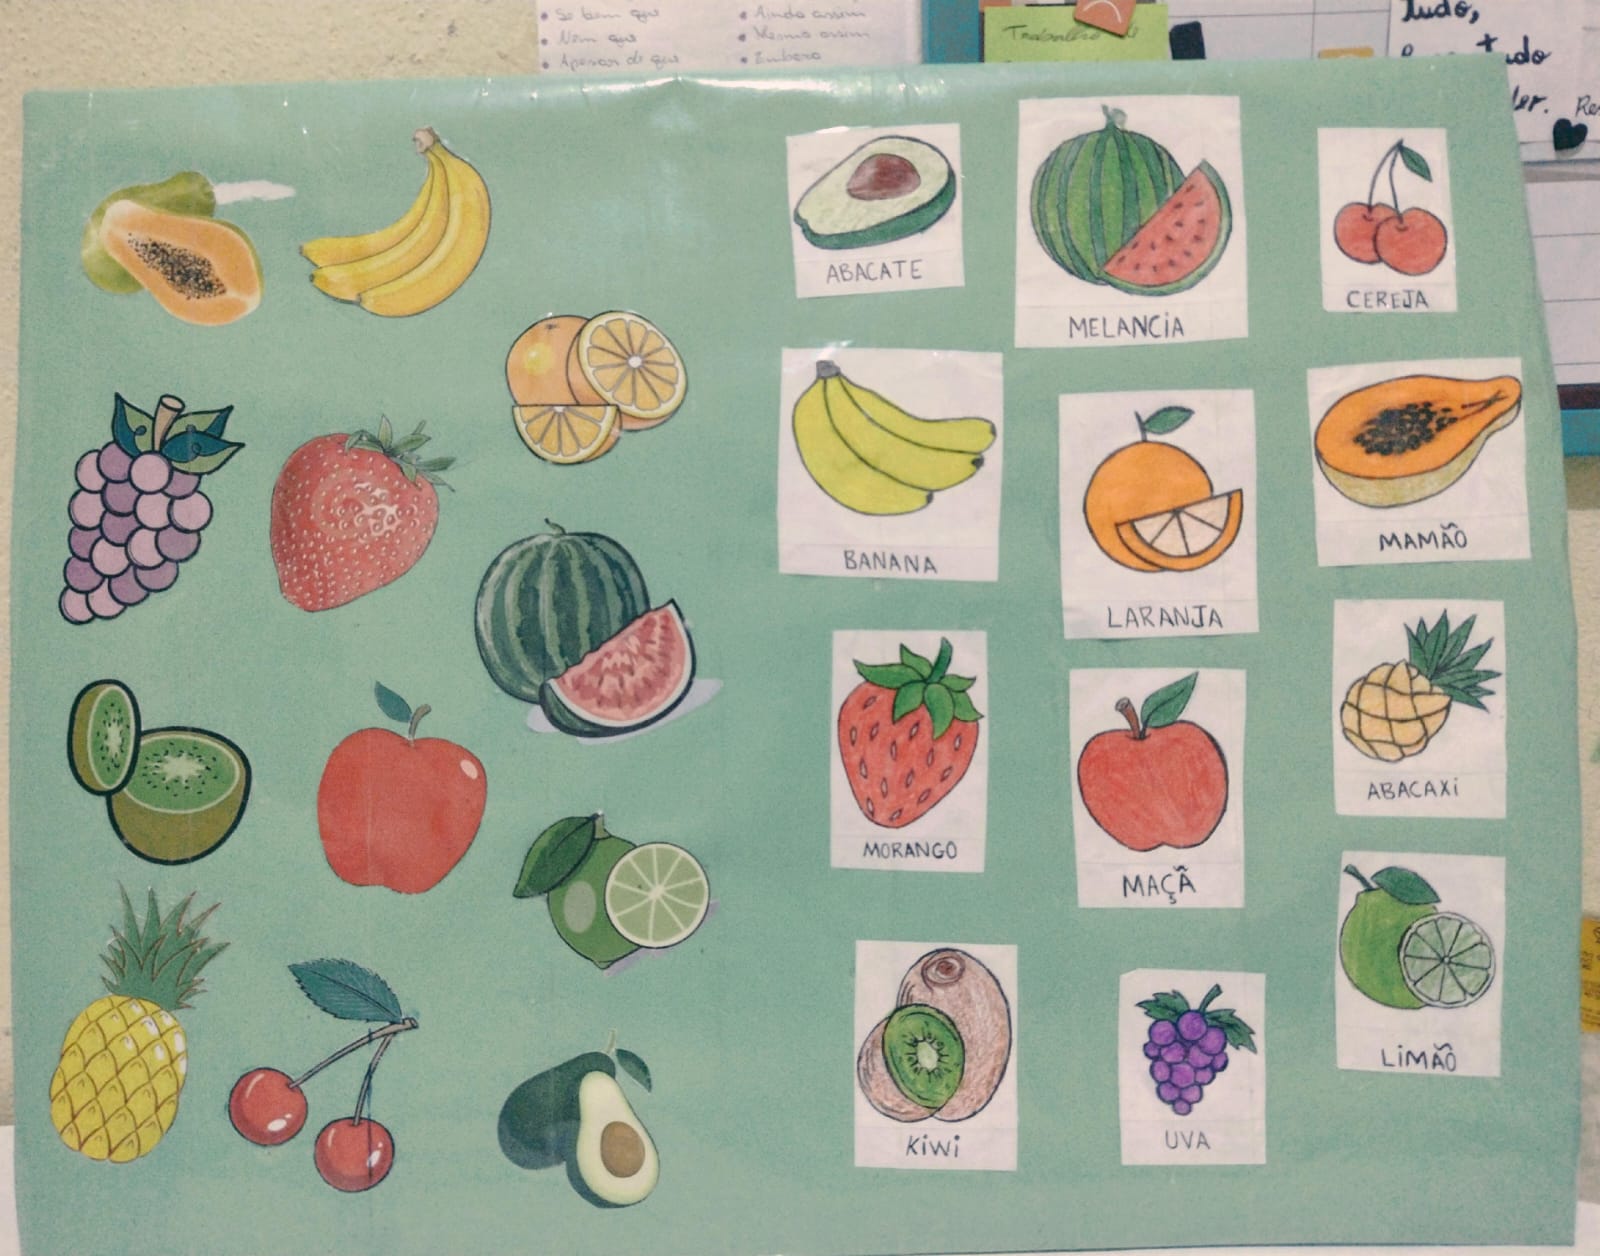 • Se bem que
• Nem que
• Apesar de que
• Ainda assim
• Mesmo assim
• Embora
Trabalho de
Tudo,
tudo
ABACATE
MELANCIA
CEREJA
BANANA
LARANJA
MAMÃO
MORANGO
MAÇÃ
ABACAXI
KIWI
UVA
LIMÃO